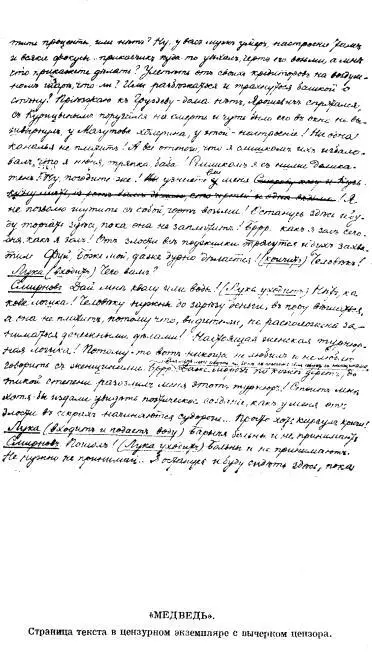 тите проценты, или нет? Ну, у вас муж умер, настроение там
и всякие фокусы... приказчик куда-то уехал, черт его возьми, а мне
что прикажете делать? Улететь от своих кредиторов на воздуш-
ном шаре, что ли? Или разбежаться и трахнуться башкой о
стену? Приезжаю к Груздеву - дома нет, Ярошевич спрятался,
с Курицыным поругался на смерть и чуть было его в окно не вы-
швырнул, у Мазутова холерина, у этой - настроение! Ни одна
каналья не платит! А всё оттого, что я слишком их избало-
вал, что я нюня, тряпка, баба! Слишком я с ними делика-
тен! Ну, погодите же! узнаете вы у меня
Я
не позволю шутить с собой, чорт возьми! Останусь здесь и бу-
ду торчать здесь, пока она не заплатит! Бррр.. как я зол сего-
дня, как я зол! От злости все поджилки трясутся и дух захва-
тило Фуй, Боже мой, даже дурно делается! (кричит) Человек!
Лука (входит) Чего вам?
Смирнов Дай мне квасу или воды! (Лука уходит) Нет, ка-
кова логика! Человеку нужны до зарезу деньги, в пору вешаться,
а она не платит, потому что, видите ли, не расположена за-
ниматься денежными делами! Настоящая женская турнюр-
ная логика! Потому-то вот никогда не любил и не люблю
говорить с женщинами. Бррр
такой степени разозлил меня этот турнюр! Стоит мне
хотя бы издали увидеть поэтическое создание, как у меня от
злости в икрах начинаются судороги... Просто хоть караул кричи!
Лука (входит и подает воду) Барыня больны и не принимают
Смирнов Пошел! (Лука уходит) Больны и не принимают.
Не нужно не принимай... Я останусь и буду сидеть здесь, пока
«МЕДВЕДЬ».
Страница текста в цензурном экземпляре с вычерком цензора.